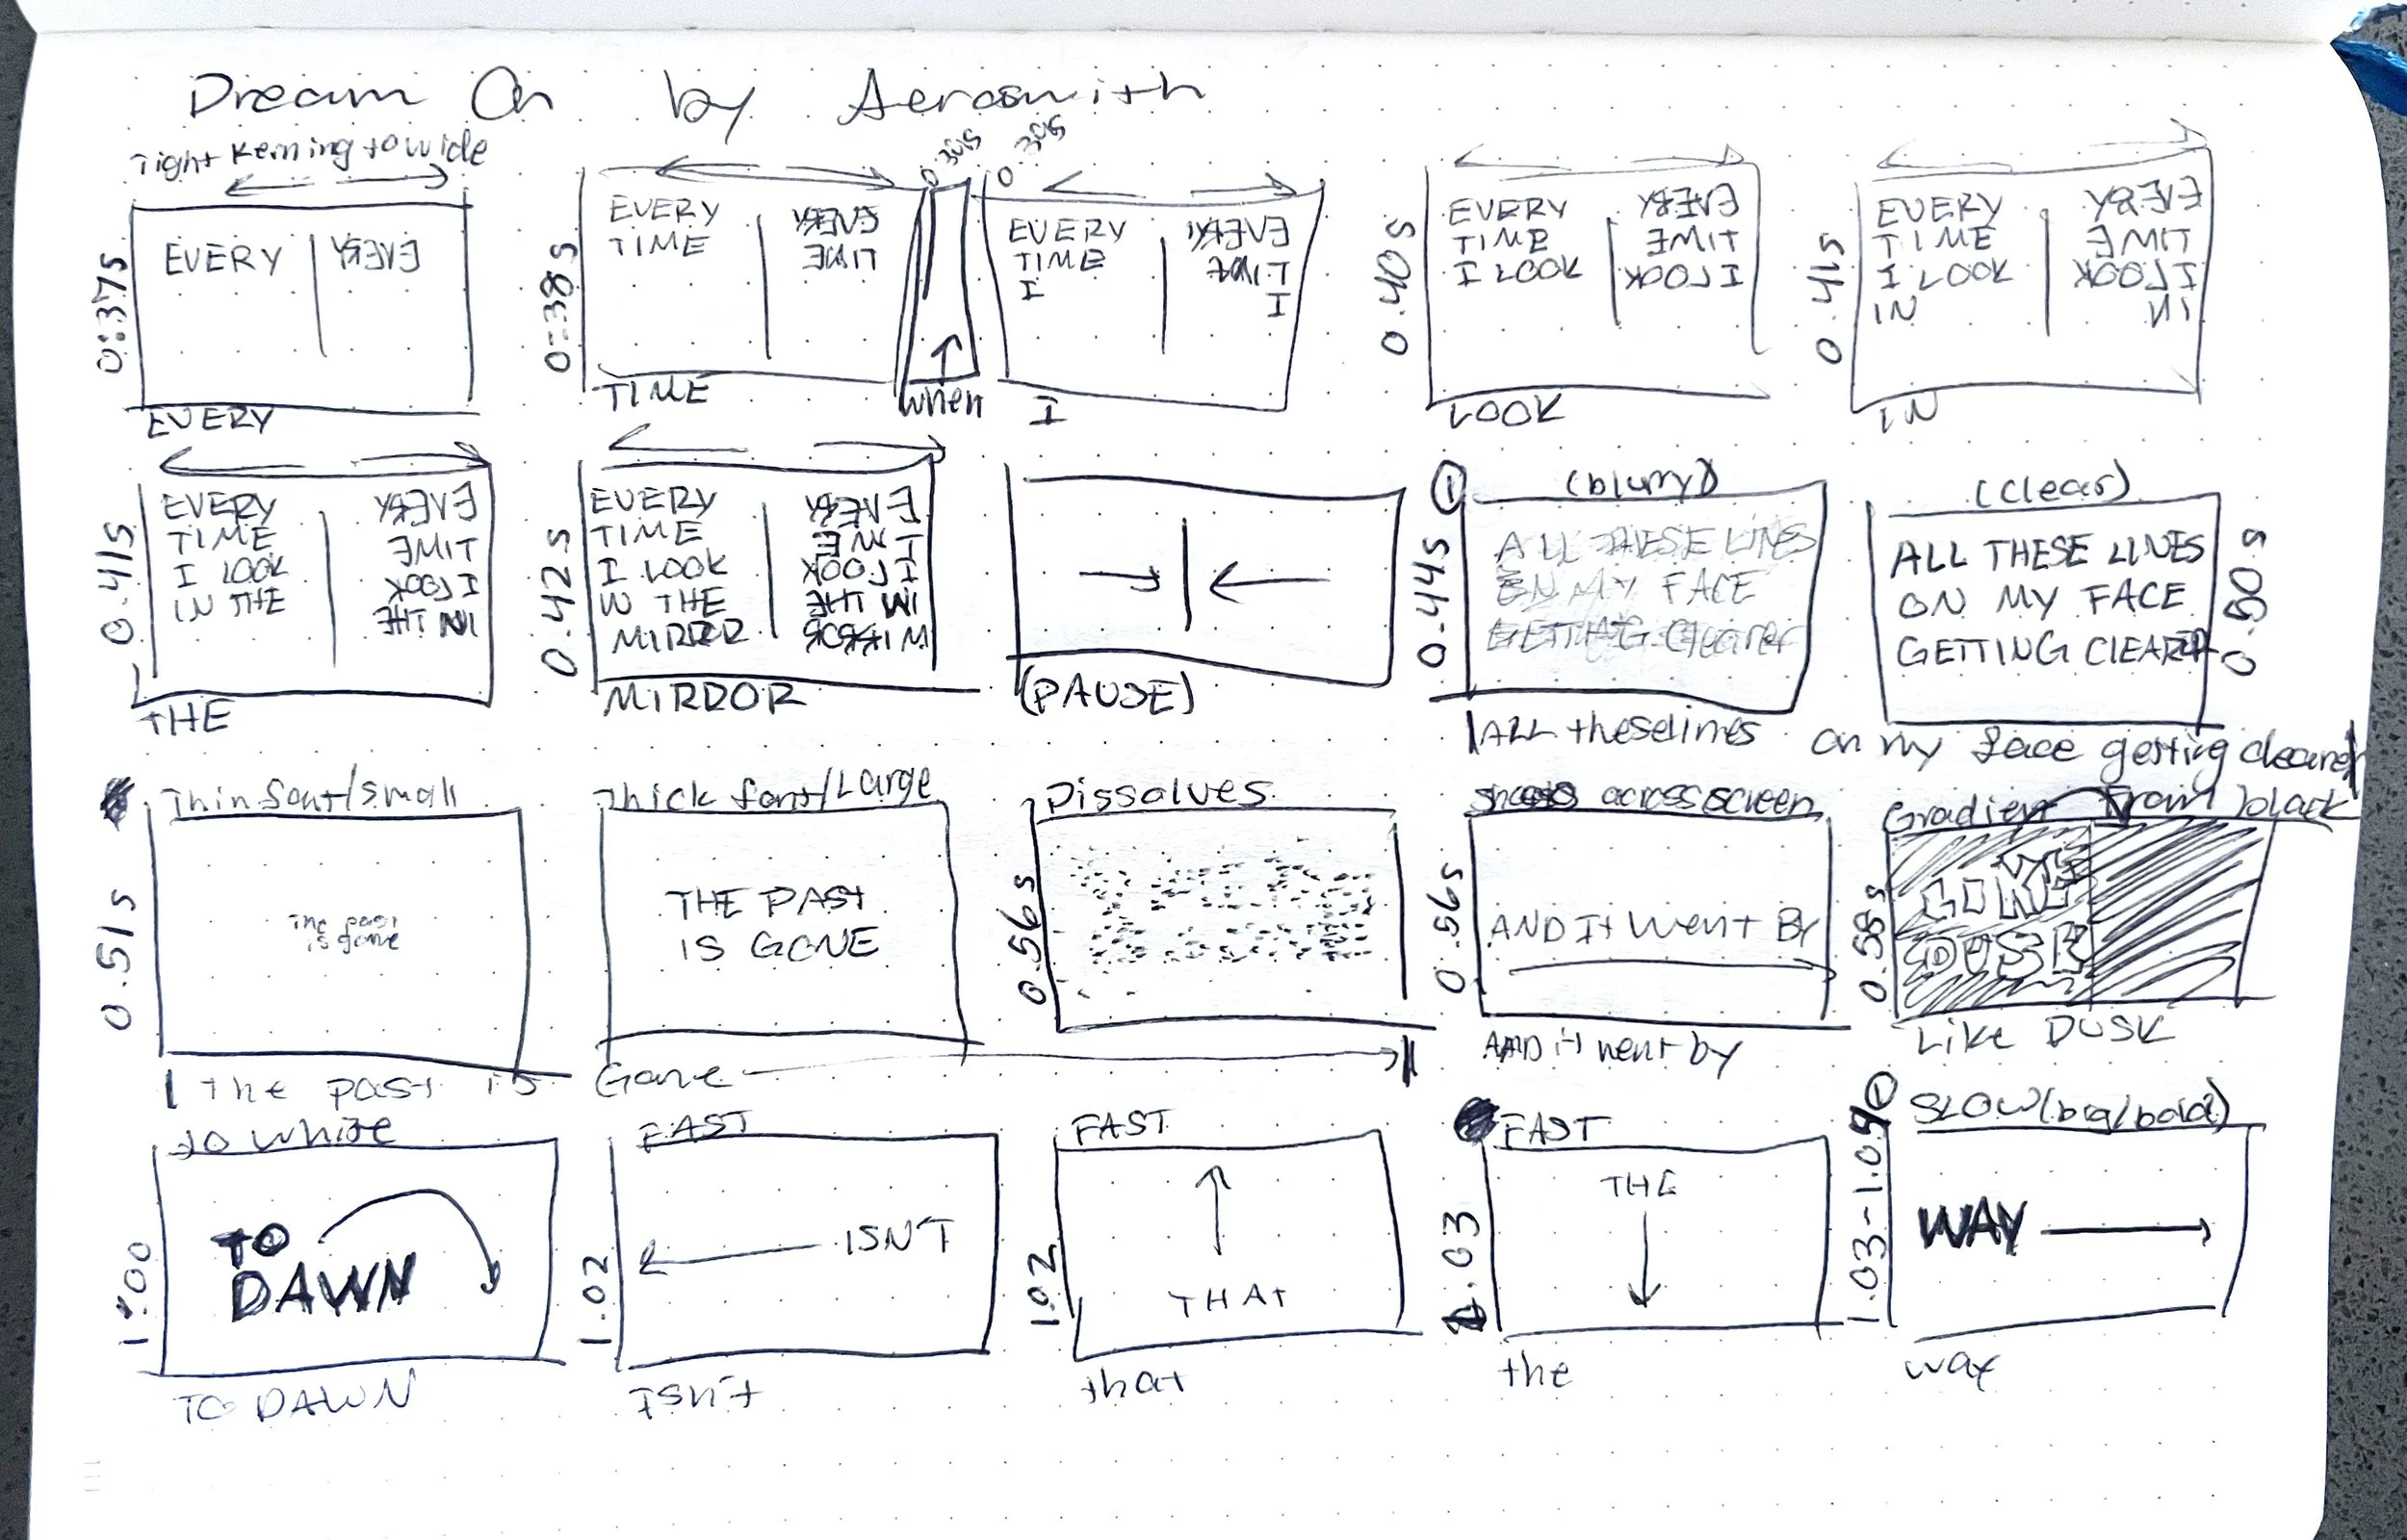 Dream On by Aerosmith
Tight Kerning to wide
0:37s
EVERY
EVERY
EVERY
0:38s
EVERY
TIME
EVERY
TIME
TIME
when
EVERY
TIME
I
EVERY
TIME
I
I
0.40s
EVERY
TIME
I LOOK
EVERY
TIME
I LOOK
LOOK
0.41s
EVERY
TIME
I LOOK
IN
EVERY
TIME
I LOOK
IN
IN
0.41s
EVERY
TIME
I LOOK
IN THE
EVERY
TIME
I LOOK
IN THE
THE
0.42s
EVERY
TIME
I LOOK
IN THE
MIRROR
EVERY
TIME
I LOOK
IN THE
MIRROR
MIRROR
(PAUSE)
1
(blurry)
0.44s
ALL THESE LINES
ON MY FACE
GETTING Clearer
ALL these lines
(clear)
ALL THESE LINES
ON MY FACE
GETTING CLEARER
0.50s
on my face getting clearer
Thin font/small
0.51s
The past
is gone
The past is
Thick font/Large
THE PAST
IS GONE
Gone
Dissolves
0.56s
across screen
0.56s
AND It Went By
AND it went by
Gradient from black
0.58s
LIKE
DUSK
Like DUSK
to white
1:00
TO
DAWN
TO DAWN
FAST
1.02
ISN'T
Isn't
FAST
1.02
THAT
that
FAST
1.03
THE
the
SLOW (big/bold)
WAY
way